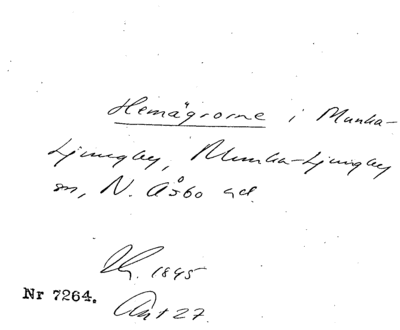 Hemägrorne i Munka-
Ljungby, Munka-Ljungby
sn, N. Åsbo hd.
1845
Nr 7264.
Akt 27.